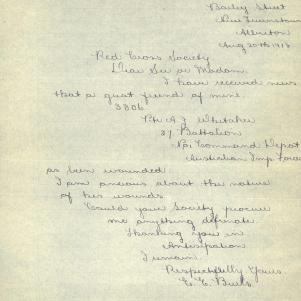 Bailey Street
New Lambton
Aug 20th 1918
Red Cross Society
Dear Sir or Madam
I have received news
that a great friend of mine
3306
Pte A J Whitaker
37 Battalion
No 1 Command Depot
Australian Imp Force
as been wounded
I am anxious about the nature
of his wounds
Could your Society procure
me anything definate
Thanking you in
Anticipation
I remain
Respectfully Yours
E. E. Butts